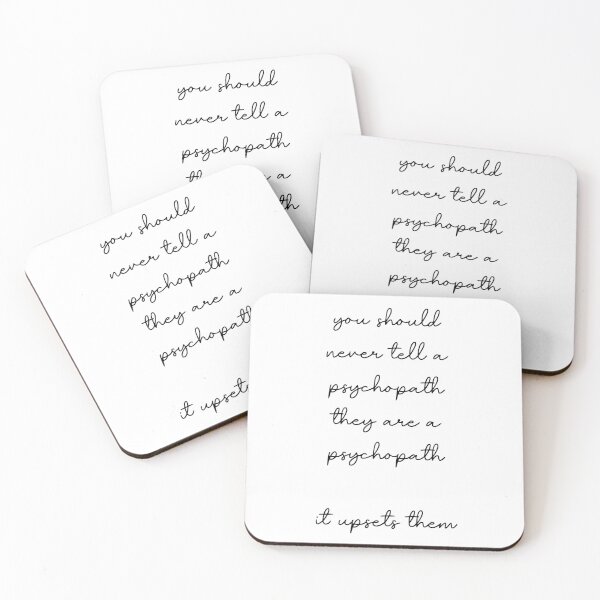 you should
never tell a
psychopath
a
you should
never tell a
psychopath
they are a
psychopath
you should
never tell a
psychopath
they are a
psychopath
it upsets
you should
never tell a
psychopath
they are a
psychopath
it upsets them